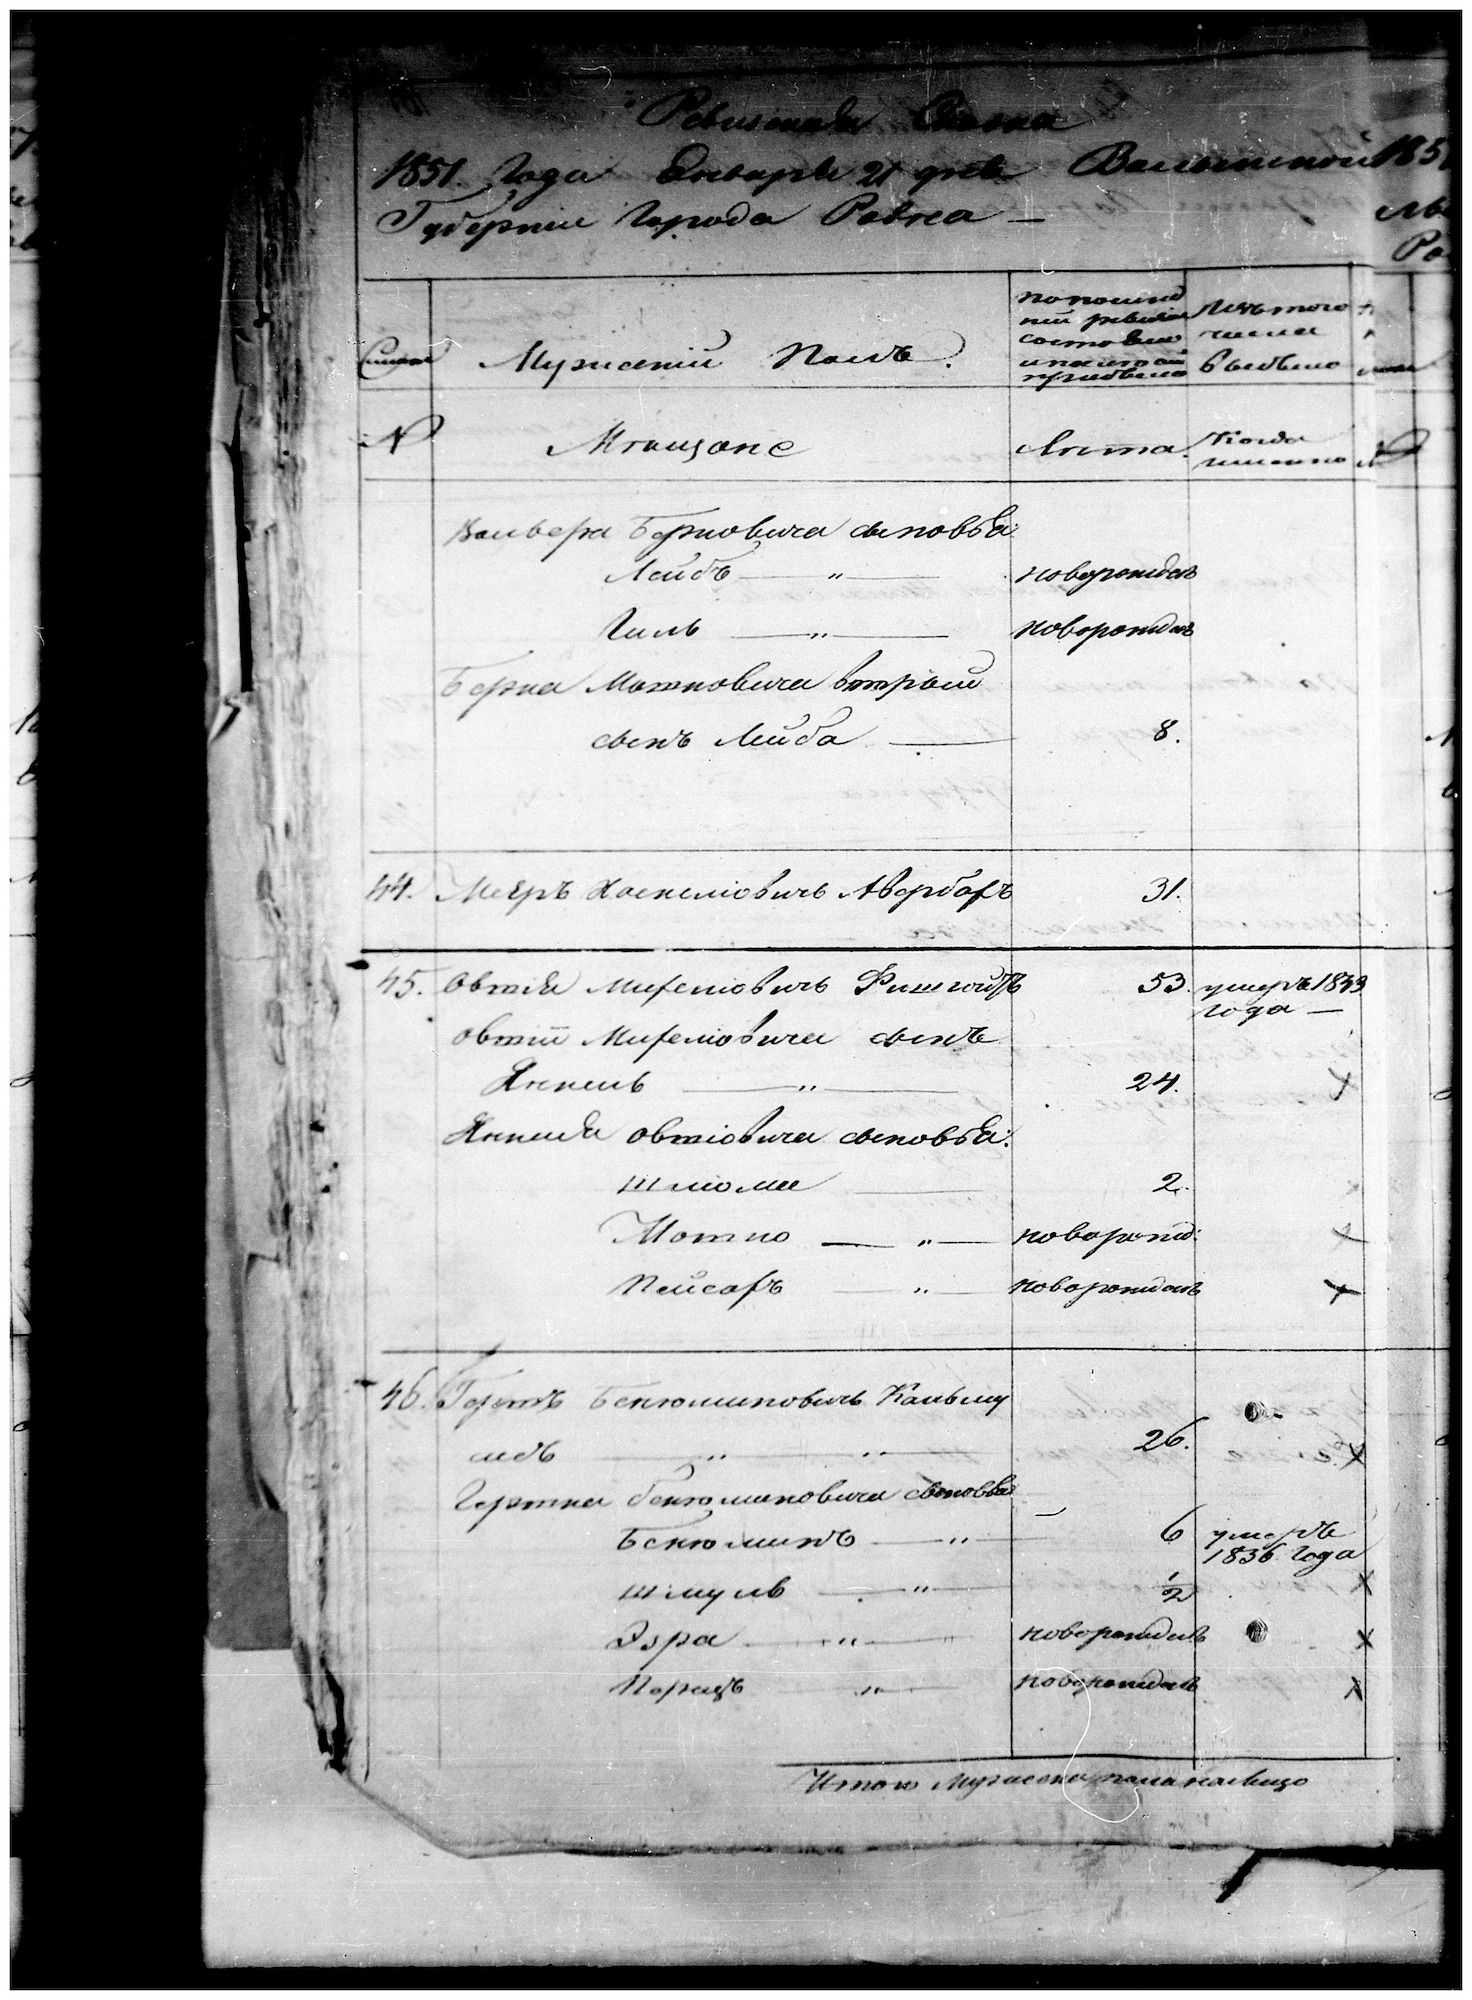 Ревизская Сказка
1851. Года Енваря 21 дня Волынской
Губернии Города Ровна —
Семьи
Мужеский Полъ.
по последней ревизіи состояло и после того прибыло
Изъ того числа выбыло
№
Мещане
Лета.
Когда именно
Вольвера Берковича сыновья:
Лейбъ — " — новорожденъ
Гиль — " — новорожденъ
Берка Мошковича вторый
сынъ Лейба — 8.
44. Мееръ Хаскелювичъ Авербахъ 31.
45. Овшія Михелювичъ Фишгойтъ 53. умеръ 1843 года —
Овшіи Михелювича сынъ
Янкель — " — 24.
Янкеля Овшіовича сыновья:
Шлюма — 2.
Мошко — " — новорожд:
Пейсахъ — " — новорожденъ
46. Гершъ Бенюминовичъ Кальму
съ — " — " — 26.
Гершка Бенюминовича сыновья
Бенюминъ — " — 6 умеръ 1836 Года
Шмуль — " — 1/2
Эзра — " — новорожденъ
Перецъ — " — новорожденъ
Итого Мужеска пола налицо